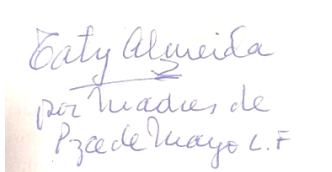 Taty Almeida
por Madres de
Pza de Mayo L.F